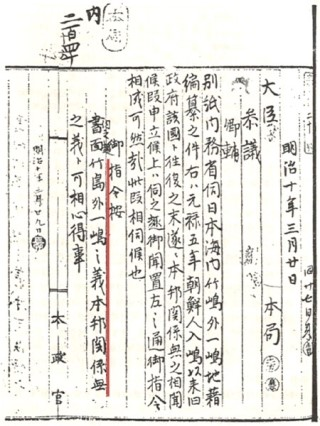 明治十年三月廿日
大臣
本局
参議
卿輔
別紙内務省伺日本海内竹嶋外一嶋地籍
編纂之件右ハ元禄五年朝鮮人入嶋以来旧
政府該國ト往復之末遂ニ本邦関係無之相聞
候段申立候上ハ伺之趣御聞置左之通御指令
相成可然哉此段相伺候也
御指令按
伺之趣
書面竹島外一嶋之義本邦関係無
之義ト可相心得事
太政官
明治十年三月廿九日
内